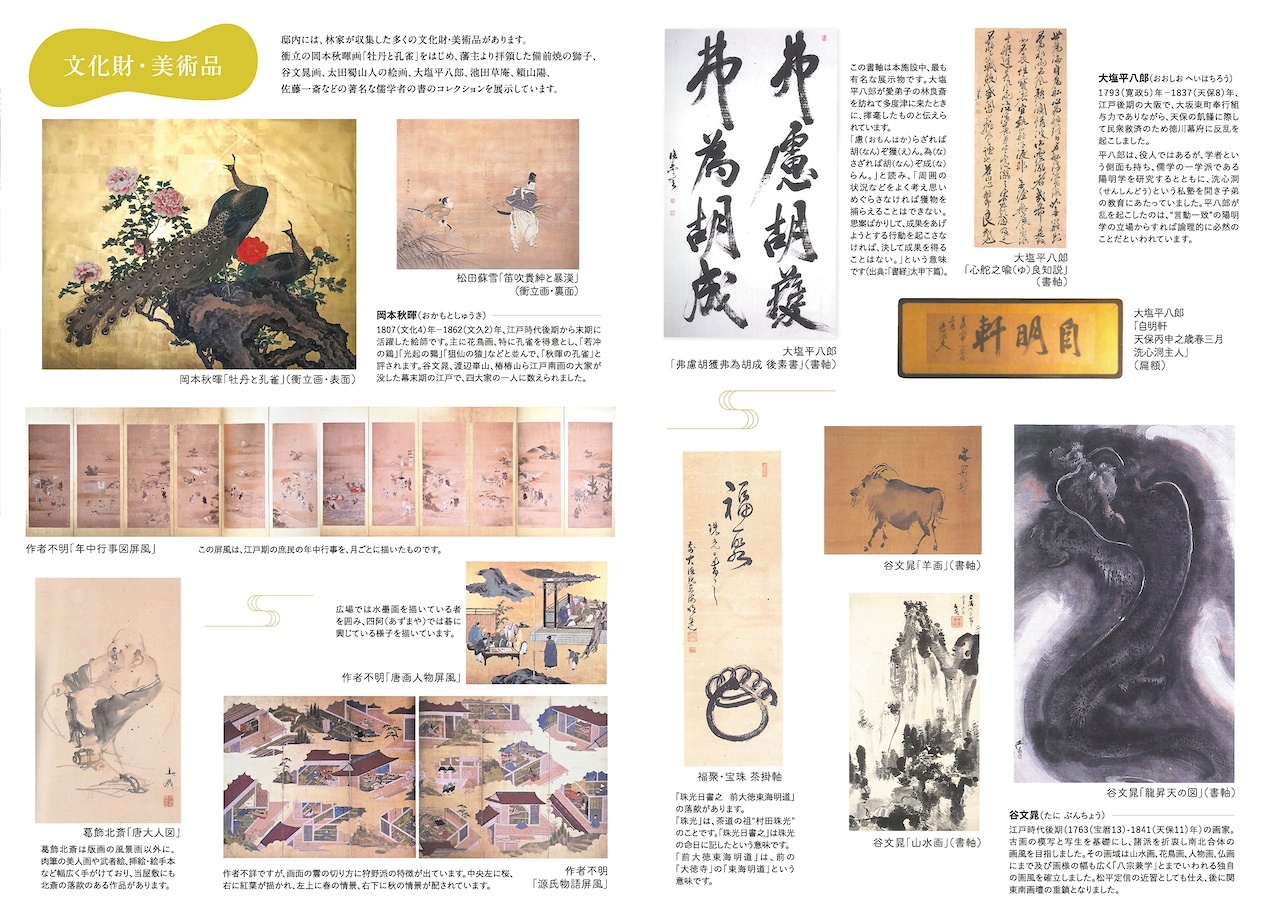 文化財・美術品
邸内には、林家が収集した多くの文化財・美術品があります。
衝立の岡本秋暉画「牡丹と孔雀」をはじめ、藩主より拝領した備前焼の獅子、
谷文晁画、太田蜀山人の絵画、大塩平八郎、池田草庵、頼山陽、
佐藤一斎などの著名な儒学者の書のコレクションを展示しています。
岡本秋暉「牡丹と孔雀」（衝立画・表面）
松田蘇雪「笛吹貴紳と暴漢」
（衝立画・裏面）
岡本秋暉（おかもとしゅうき）
1807（文化4）年−1862（文久2）年、江戸時代後期から末期に
活躍した絵師です。主に花鳥画、特に孔雀を得意とし、「若冲
の鶏」「光起の鶉」「狙仙の猿」などと並んで、「秋暉の孔雀」と
評されます。谷文晁、渡辺崋山、椿椿山ら江戸南画の大家が
没した幕末期の江戸で、四大家の一人に数えられました。
作者不明「年中行事図屏風」
この屏風は、江戸期の庶民の年中行事を、月ごとに描いたものです。
葛飾北斎「唐大人図」
葛飾北斎は版画の風景画以外に、
肉筆の美人画や武者絵、挿絵・絵手本
など幅広く手がけており、当屋敷にも
北斎の落款のある作品があります。
広場では水墨画を描いている者
を囲み、四阿（あずまや）では碁に
興じている様子を描いています。
作者不明「唐画人物屏風」
作者不詳ですが、画面の雲の切り方に狩野派の特徴が出ています。中央左に桜、
右に紅葉が描かれ、左上に春の情景、右下に秋の情景が配されています。
作者不明
「源氏物語屏風」
弗慮胡獲
弗為胡成
大塩平八郎
「弗慮胡獲弗為胡成 後素書」（書軸）
この書軸は本施設中、最も
有名な展示物です。大塩
平八郎が愛弟子の林良斎
を訪ねて多度津に来たとき
に、揮毫したものと伝えら
れています。
「慮（おもんはか）らざれば
胡（なん）ぞ獲（え）ん。為（な）
さざれば胡（なん）ぞ成（な）
らん。」と読み、「周囲の
状況などをよく考え思い
めぐらさなければ獲物を
捕らえることはできない。
思案ばかりして、成果をあげ
ようとする行動を起こさな
ければ、決して成果を得る
ことはない。」という意味
です（出典：「書経」太甲下篇）。
大塩平八郎
「心舵之喩（ゆ）良知説」
（書軸）
大塩平八郎（おおしお へいはちろう）
1793（寛政5）年−1837（天保8）年、
江戸後期の大阪で、大坂東町奉行組
与力でありながら、天保の飢饉に際し
て民衆救済のため徳川幕府に反乱を
起こしました。
平八郎は、役人ではあるが、学者とい
う側面も持ち、儒学の一学派である
陽明学を研究するとともに、洗心洞
（せんしんどう）という私塾を開き子弟
の教育にあたっていました。平八郎が
乱を起こしたのは、“言動一致”の陽明
学の立場からすれば論理的に必然の
ことだといわれています。
自明軒
大塩平八郎
「自明軒
天保丙申之歳春三月
洗心洞主人」
（扁額）
福聚
福聚・宝珠 茶掛軸
「珠光日書之　前大徳東海明道」
の落款があります。
「珠光」は、茶道の祖“村田珠光”
のことです。「珠光日書之」は珠光
の命日に記したという意味です。
「前大徳東海明道」は、前の
「大徳寺」の「東海明道」という
意味です。
谷文晁「羊画」（書軸）
谷文晁「山水画」（書軸）
谷文晁「龍昇天の図」（書軸）
谷文晁（たに ぶんちょう）
江戸時代後期（1763（宝暦13）-1841（天保11）年）の画家。
古画の模写と写生を基礎にし、諸派を折衷し南北合体の
画風を目指しました。その画域は山水画、花鳥画、人物画、仏画
にまで及び画様の幅も広く「八宗兼学」とまでいわれる独自
の画風を確立しました。松平定信の近習としても仕え、後に関
東南画壇の重鎮となりました。